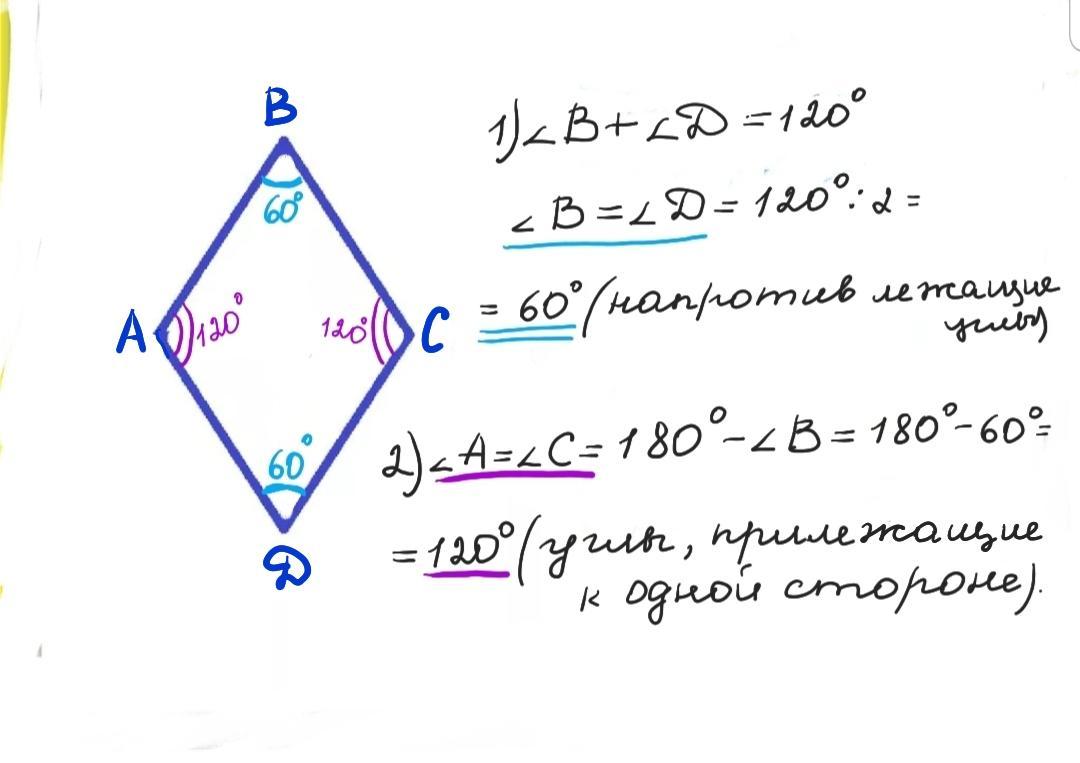 B
60°
A
120°
120°
C
60°
D
1) ∠B + ∠D = 120°
∠B = ∠D = 120° : 2 =
= 60° (напротив лежащие
углы)
2) ∠A = ∠C = 180° - ∠B = 180° - 60° =
= 120° (углы, прилежащие
к одной стороне).